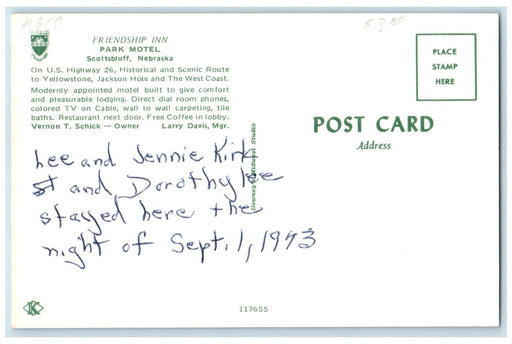 #S10
£3.00
FRIENDSHIP INN
PARK MOTEL
Scottsbluff, Nebraska
On U.S. Highway 26, Historical and Scenic Route
to Yellowstone, Jackson Hole and The West Coast.
Modernly appointed motel built to give comfort
and pleasurable lodging. Direct dial room phones,
colored TV on Cable, wall to wall carpeting, tile
baths. Restaurant next door. Free Coffee in lobby.
Vernon T. Schick — Owner Larry Davis, Mgr.
PLACE
STAMP
HERE
POST CARD
Address
Lee and Jennie Kirk
and Dorothy Lee
stayed here the
night of Sept. 1, 1973
Midwest Studio
117655
K